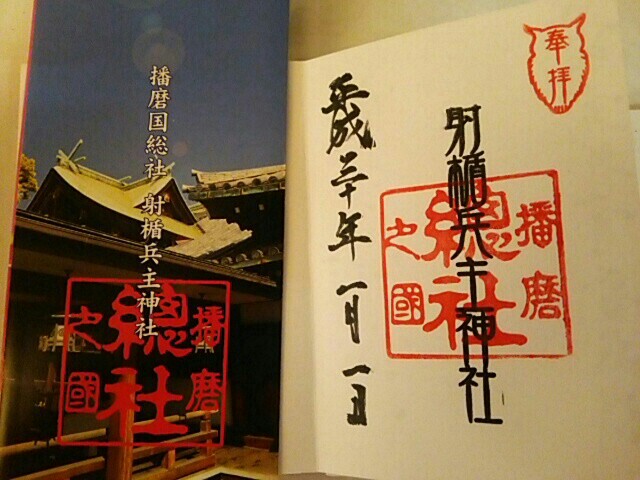 奉拝
播磨
總社
之國
射楯兵主神社
平成三十年一月一日
播磨国総社 射楯兵主神社
播磨
總社
之國